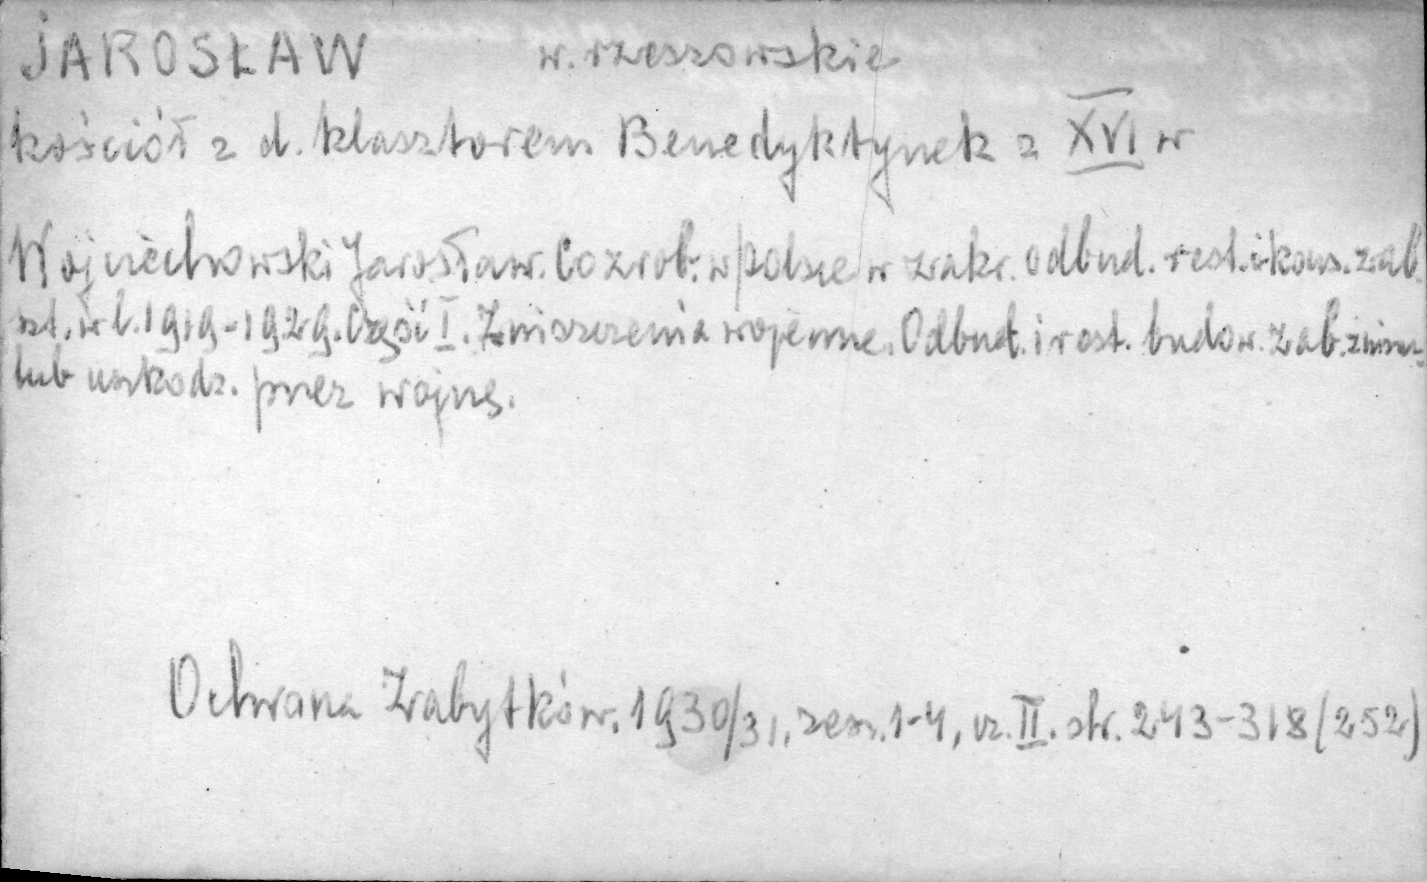 JAROSŁAW w. rzeszowskie
kościół z d. klasztorem Benedyktynek z XVI w
Wojciechowski Jarosław. Co zrob. w Polsce w zakr. odbud. rest. i kons. zab.
szt. w l. 1919-1929. Część I. Zniszczenia wojenne. Odbud. i rest. budow. zab. zniszcz.
lub uszkodz. przez wojnę.
Ochrona Zabytków. 1930/31, zesz. 1-4, cz. II. str. 243-318 (252)